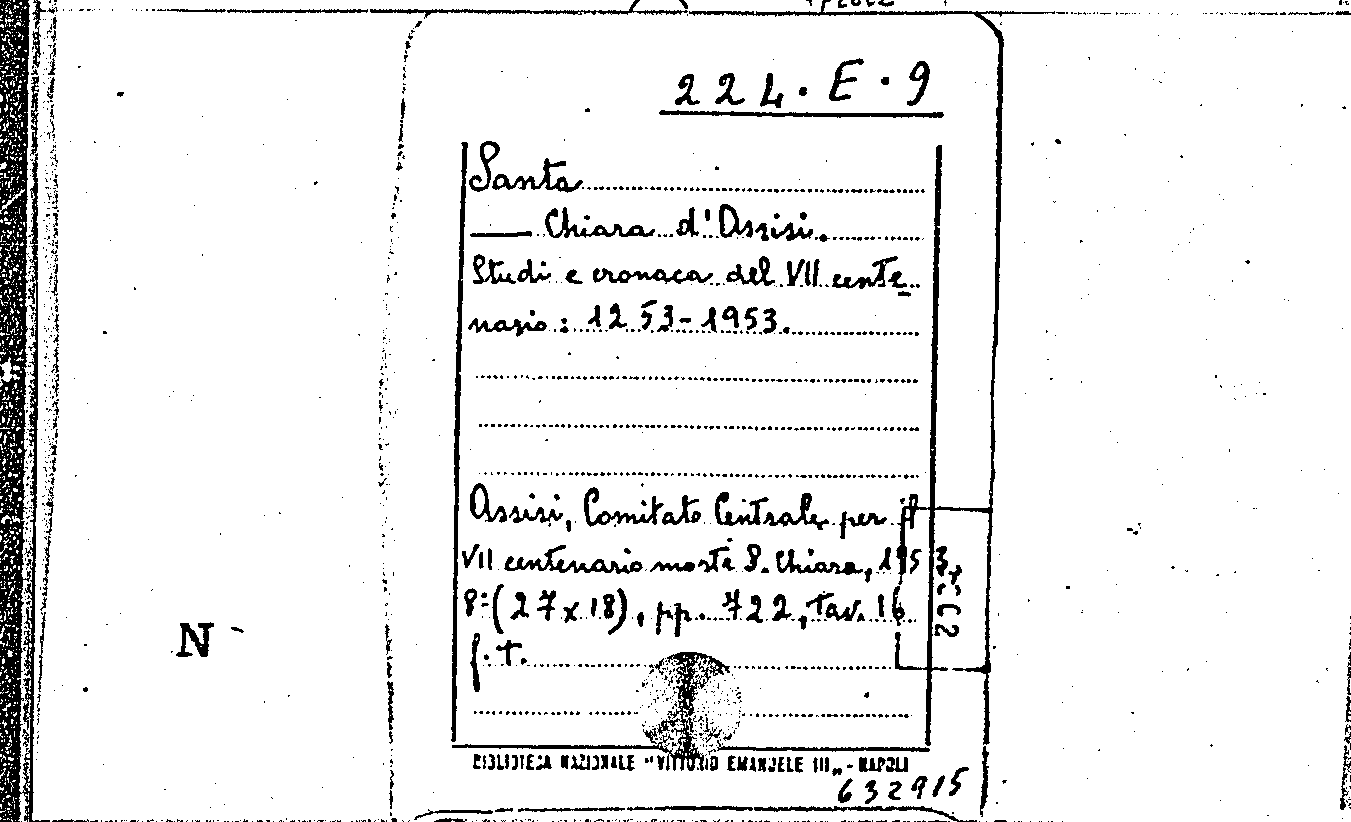 224.E.9
Santa
— Chiara d'Assisi.
Studi e cronaca del VII cente
nario: 1253-1953.
Assisi, Comitato Centrale per il
VII centenario morte S. Chiara, 1953
8º (27x18), pp. 722, tav. 16
f.t.
N
BIBLIOTECA NAZIONALE "VITTORIO EMANUELE III" - NAPOLI
632915